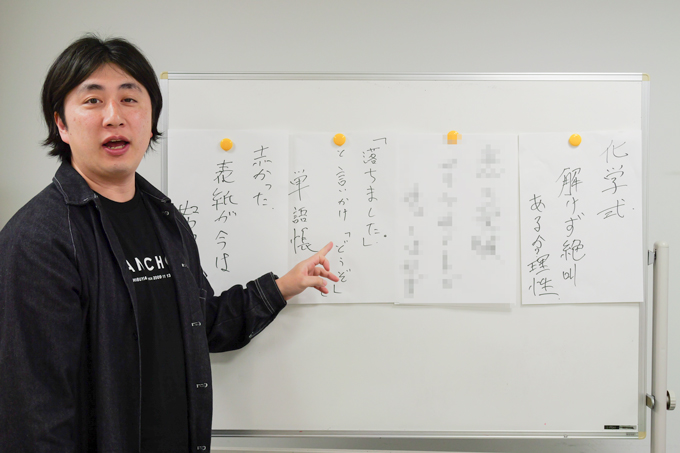 化学式
解けず絶叫
ある 理性
「落ちました。」
と言いかけ「どうぞ」
単語帳
赤かった
表紙が今は
ANCH